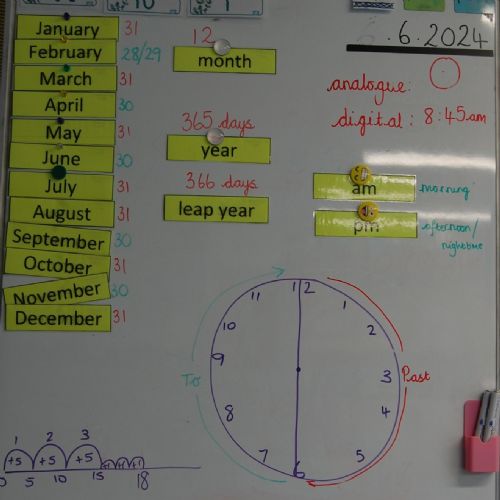 10
January 31
February 28/29
March 31
April 30
May 31
June 30
July 31
August 31
September 30
October 31
November 30
December 31
12
month
365 days
year
366 days
leap year
.6.2024
analogue:
digital: 8:45am
am morning
pm afternoon/
nighttime
12
1
2
3
4
5
6
7
8
9
10
11
To
Past
1 2 3
+5 +5 +5 +1 +1 +1
0 5 10 15 18